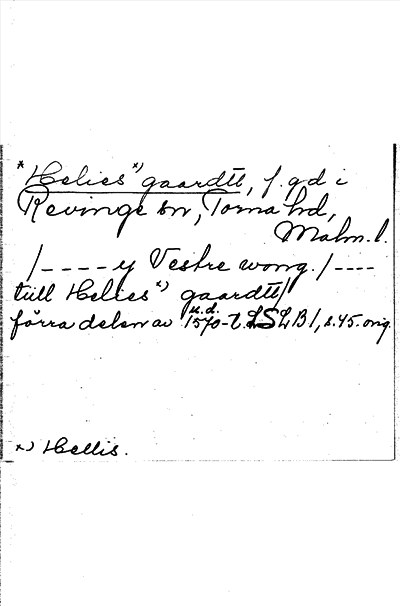 * Helies x) gaardtt, f. gd i
Revinge sn, Torna hd,
Malm. l.
/----y Vestre wong. /----
tiill Helies x) gaardtt/
förra delen av u.d. 1570-t. LSLB I, s. 45. orig.
x) Hellis.